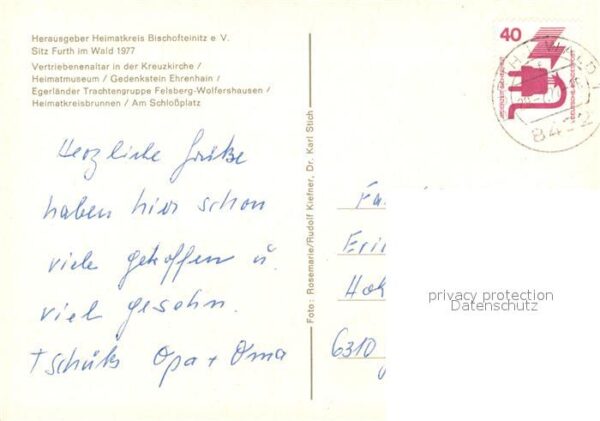 Herausgeber Heimatkreis Bischofteinitz e V.
Sitz Furth im Wald 1977
Vertriebenenaltar in der Kreuzkirche /
Heimatmuseum / Gedenkstein Ehrenhain /
Egerländer Trachtengruppe Felsberg-Wolfershausen /
Heimatkreisbrunnen / Am Schloßplatz
Herzliche Grüße
haben hier schon
viele getroffen u.
viel gesehn.
tschüß Opa + Oma
Foto: Rosemarie/Rudolf Kiefner, Dr. Karl Stich
40
WALD 1
Fa
Eri
Hok
6310
privacy protection
Datenschutz